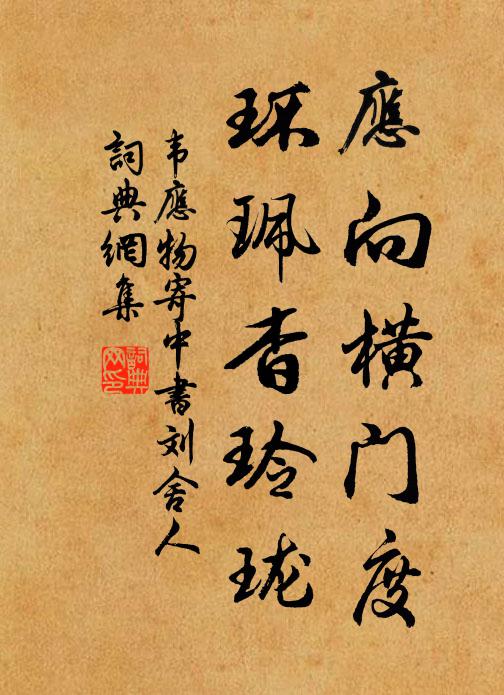 應向橫门度
环珮杳玲珑
韦應物寄中書刘舍人
詞典網集
詞典网印